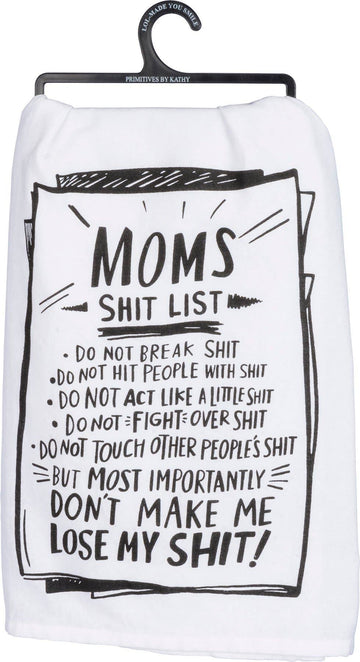 LOL-MADE YOU SMILE
PRIMITIVES BY KATHY
MOMS
SHIT LIST
• DO NOT BREAK SHIT
• DO NOT HIT PEOPLE WITH SHIT
• DO NOT ACT LIKE A LITTLE SHIT
• DO NOT FIGHT OVER SHIT
• DO NOT TOUCH OTHER PEOPLE'S SHIT
BUT MOST IMPORTANTLY
DON'T MAKE ME
LOSE MY SHIT!